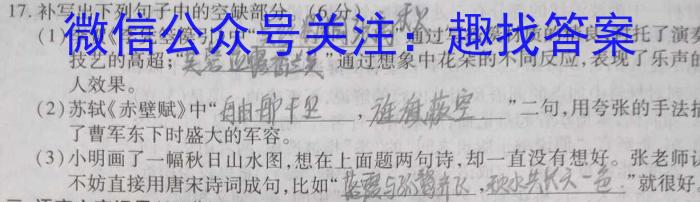 17.补写出下列句子中的空缺部分。(6分)
微信公众号关注：趣找答案
(1)
技艺的高超；"芙蓉泣露香兰笑"通过想象中花朵的不同反应,表现了乐声的
人效果。
(2)苏轼《赤壁赋》中"舳舻千里,旌旗蔽空"二句,用夸张的手法描
了曹军东下时盛大的军容。
(3)小明画了一幅秋日山水图,想在上面题两句诗,却一直没有想好。张老师让
不妨直接用唐宋诗词成句,比如"落霞与孤鹜齐飞,秋水共长天一色"就很好